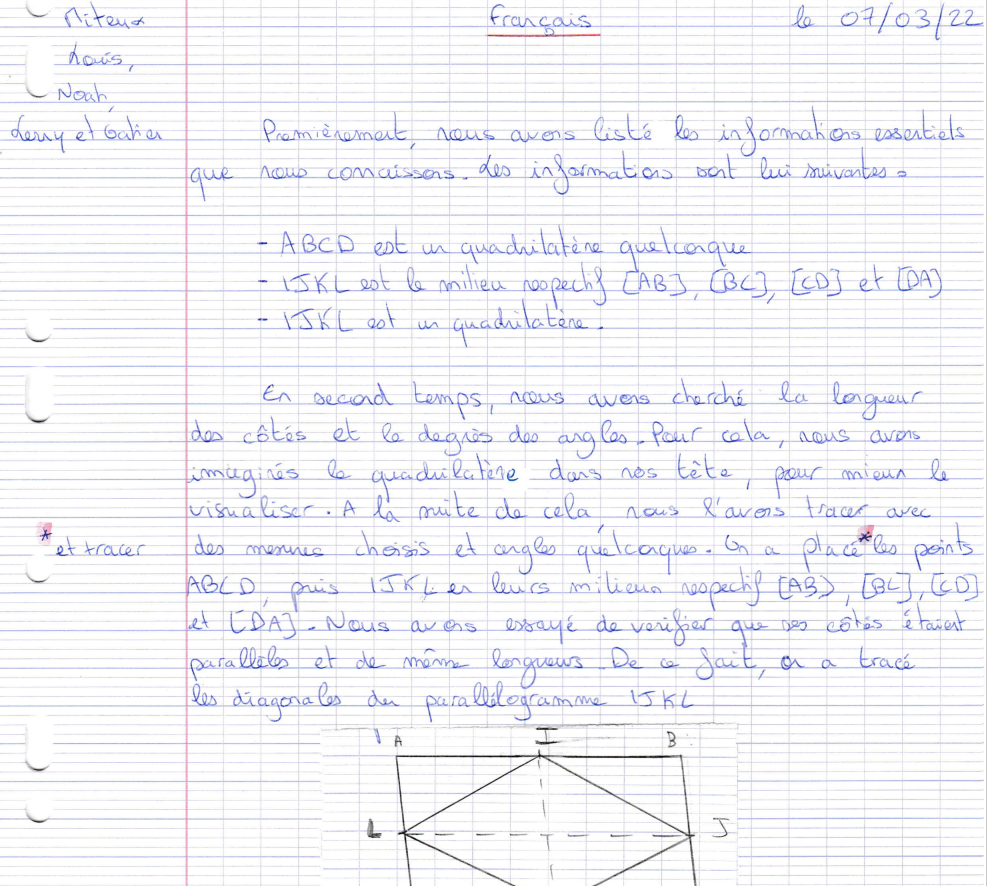 Miteux Français le 07/03/22
Louis,
Noah,
Lenny et Gatien Premièrement, nous avons listé les informations essentiels
que nous connaissons. Les informations sont lui suivantes :
- ABCD est un quadrilatère quelconque
- IJKL est le milieu respectif [AB], [BC], [CD] et [DA]
- IJKL est un quadrilatère.
En second temps, nous avons cherché la longueur
des côtés et le degrès des angles. Pour cela, nous avons
imaginés le quadrilatère dans nos tête, pour mieux le
visualiser. A la suite de cela, nous l'avons tracer avec
* et tracer des mesures choisis et angles quelconques. On a placé * les points
ABCD, puis IJKL en leurs milieux respectif [AB], [BC], [CD]
et [DA]. Nous avons essayé de verifier que ses côtés étaient
parallèles et de même longueurs. De ce fait, on a tracé
les diagonales du parallélogramme IJKL
A I B
L J